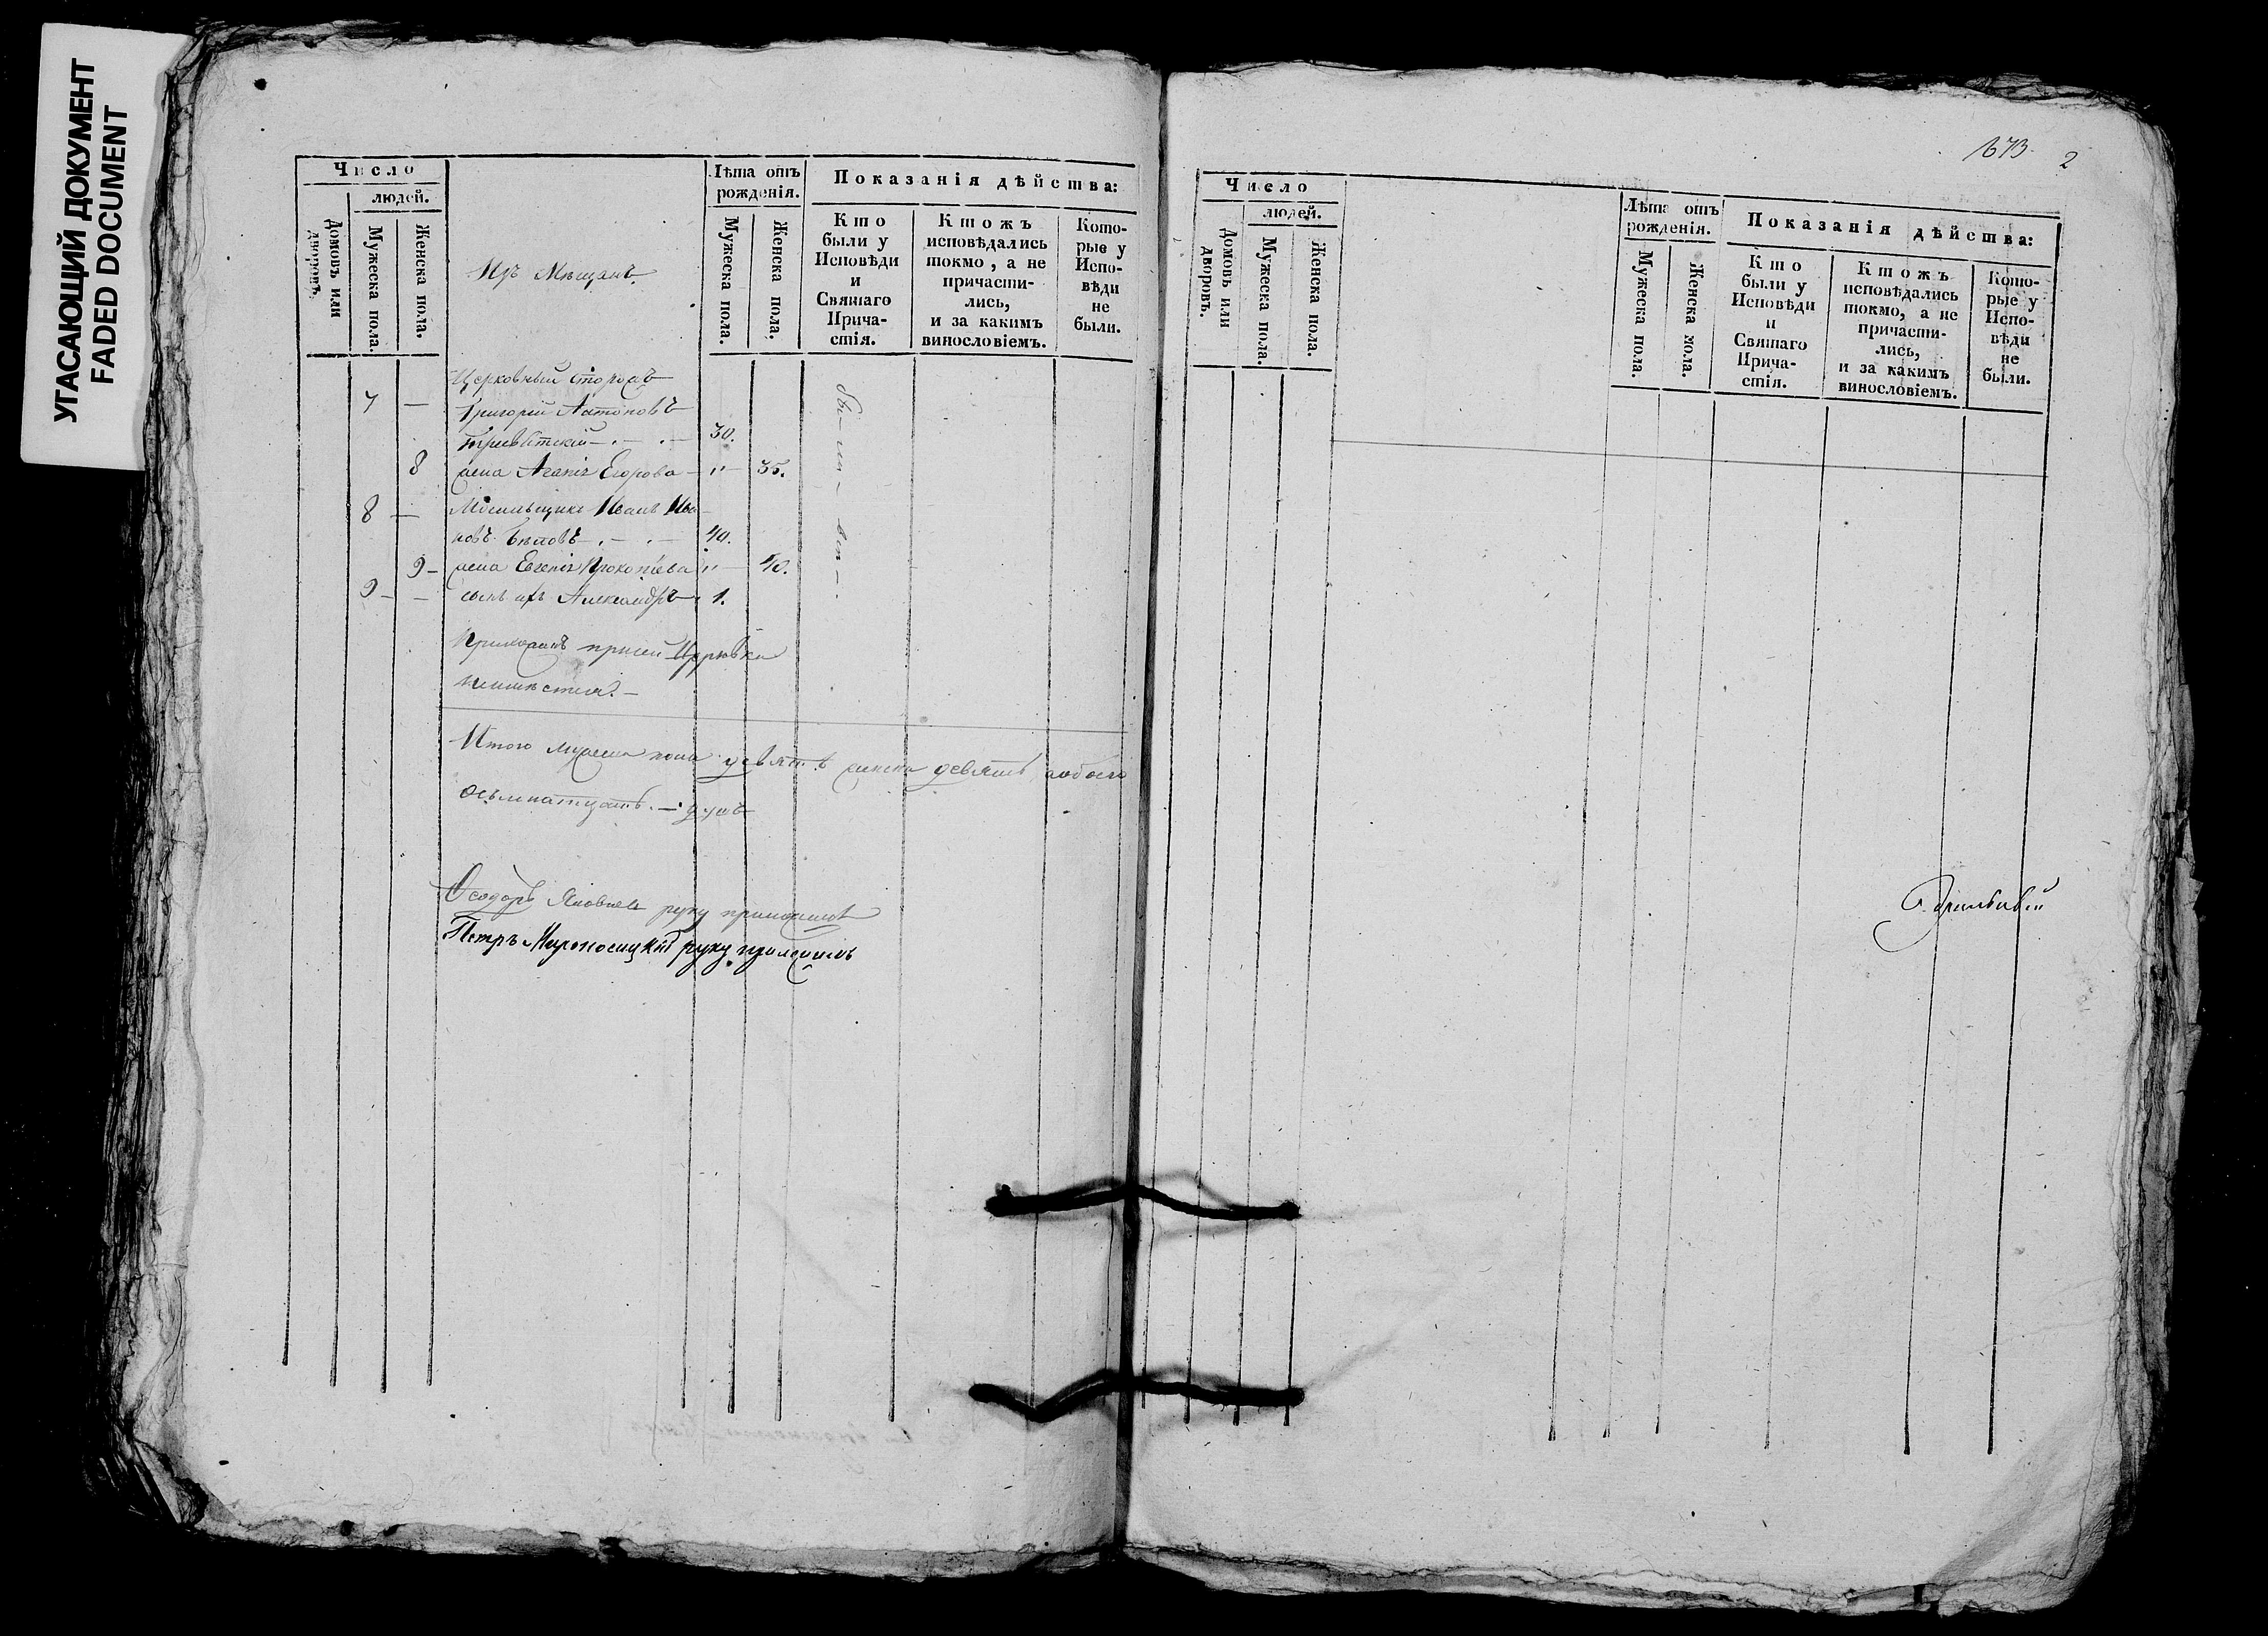 УГАСАЮЩИЙ ДОКУМЕНТ
FADED DOCUMENT
Число
людей.
Домовъ или дворовъ.
Мужеска пола.
Женска пола.
Изъ Мѣщанъ
Лѣта отъ рожденія.
Мужеска пола.
Женска пола.
Показанія дѣйства:
Кто были у Исповѣди и Святаго Причастія.
Ктожъ исповѣдались токмо, а не причастились, и за какимъ винословіемъ.
Которые у Исповѣди не были.
Церковный сторожъ
7 — Григорій Антоновъ
30.
8 жена Агапія Егорова — „ — 35.
8 — Иванъ Ива-
новъ Бѣловъ — . — . — 40.
9 — жена Евгенія Прокопьева „ — 40.
9 — — сынъ ихъ Александръ 1.
бы — ли — вси — .
Прихожанъ при сей Церкви
неимѣется. —
Итого мужеска пола девять женска девять, а обоего
осьмнатцать. — душъ
Ѳеодоръ Яковлевъ руку приложилъ
Петръ Мироносицкій руку приложилъ
673. 2
Число
людей.
Домовъ или дворовъ.
Мужеска пола.
Женска пола.
Лѣта отъ рожденія.
Мужеска пола.
Женска пола.
Показанія дѣйства:
Кто были у Исповѣди и Святаго Причастія.
Ктожъ исповѣдались токмо, а не причастились, и за какимъ винословіемъ.
Которые у Исповѣди не были.